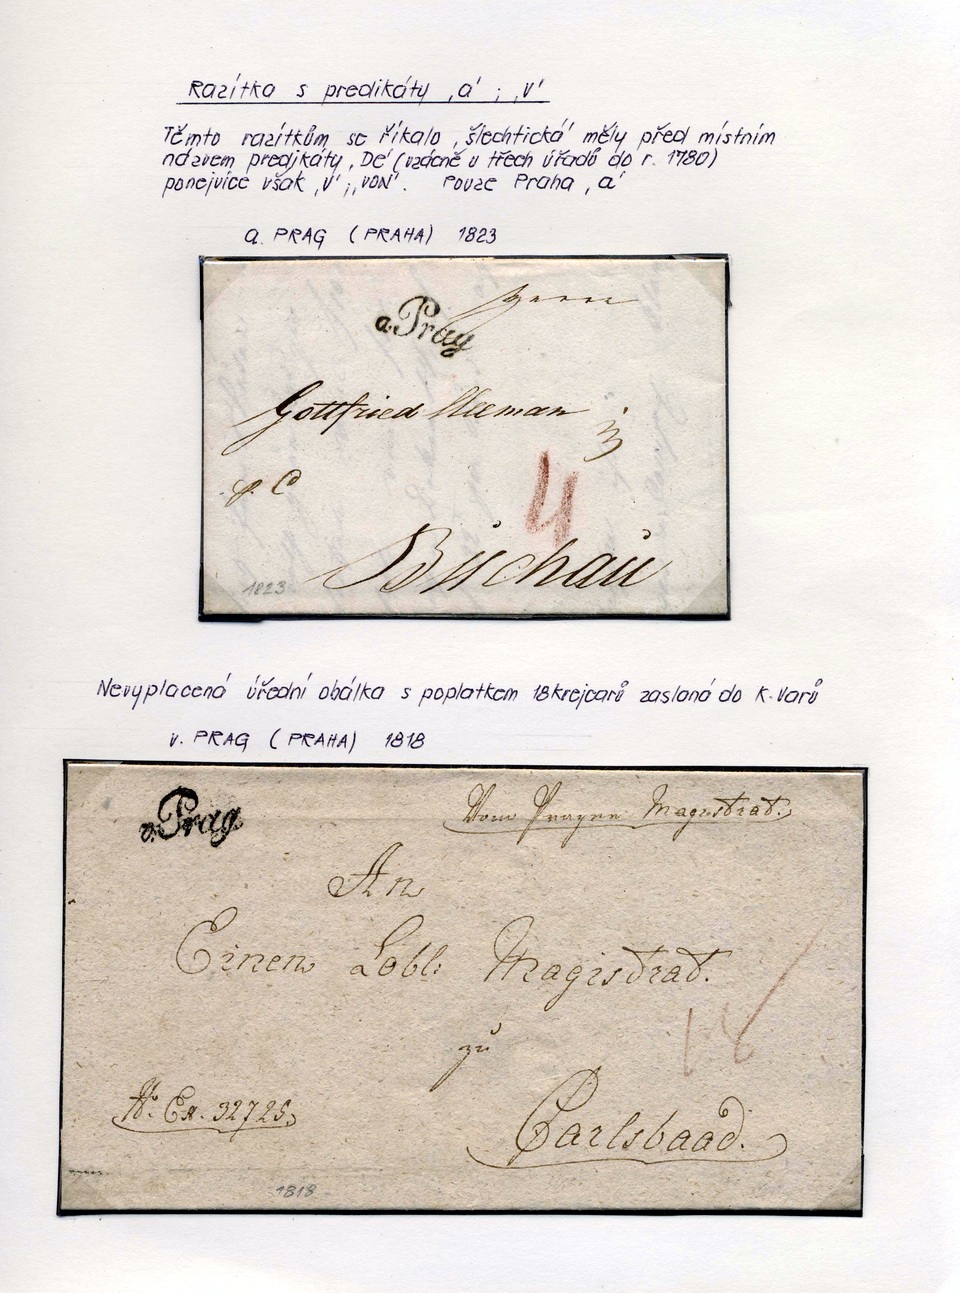 Razítka s predikáty ,a' ; ,v'
Těmto razítkům se říkalo ,šlechtická' měly před místním
názvem predikáty ,De' (vzácně u třech úřadů do r. 1780)
ponejvíce však ,v' ; ,von'. Pouze Praha ,a'
a. PRAG (PRAHA) 1823
a. Prag
Gottfried
p. C
4
Buchau
1823
Nevyplacená úřední obálka s poplatkem 18 krejcarů zaslaná do K. Varů
v. PRAG (PRAHA) 1818
v. Prag
Vom Prager Magistrat.
An
Einen Löbl: Magistrat.
18
zu
N: Ex. 32725.
Carlsbaad.
1818